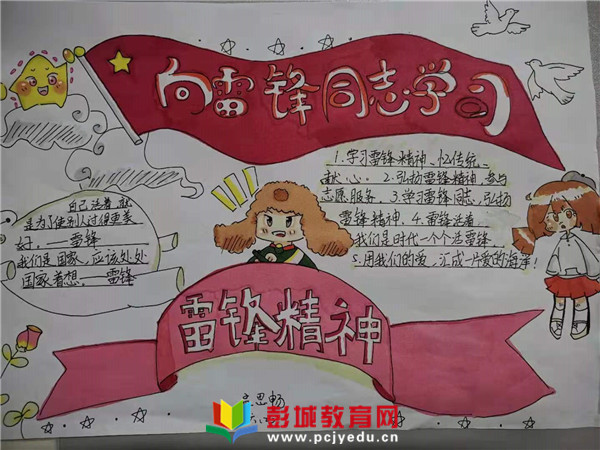 向雷锋同志学习
自己活着,就
是为了使别人过得更美
好。——雷锋
我们是国家,应该处处
国家着想。 雷锋
1.学习雷锋精神、忆传统、
献心。2.弘扬雷锋精神,参与
志愿服务。3.学习雷锋同志,弘扬
雷锋精神。4.雷锋活着、
我们是时代一个个活雷锋、
5.用我们的爱,汇成一片爱的海洋!
雷锋精神
思畅
彭城教育网
www.pcjyedu.cn